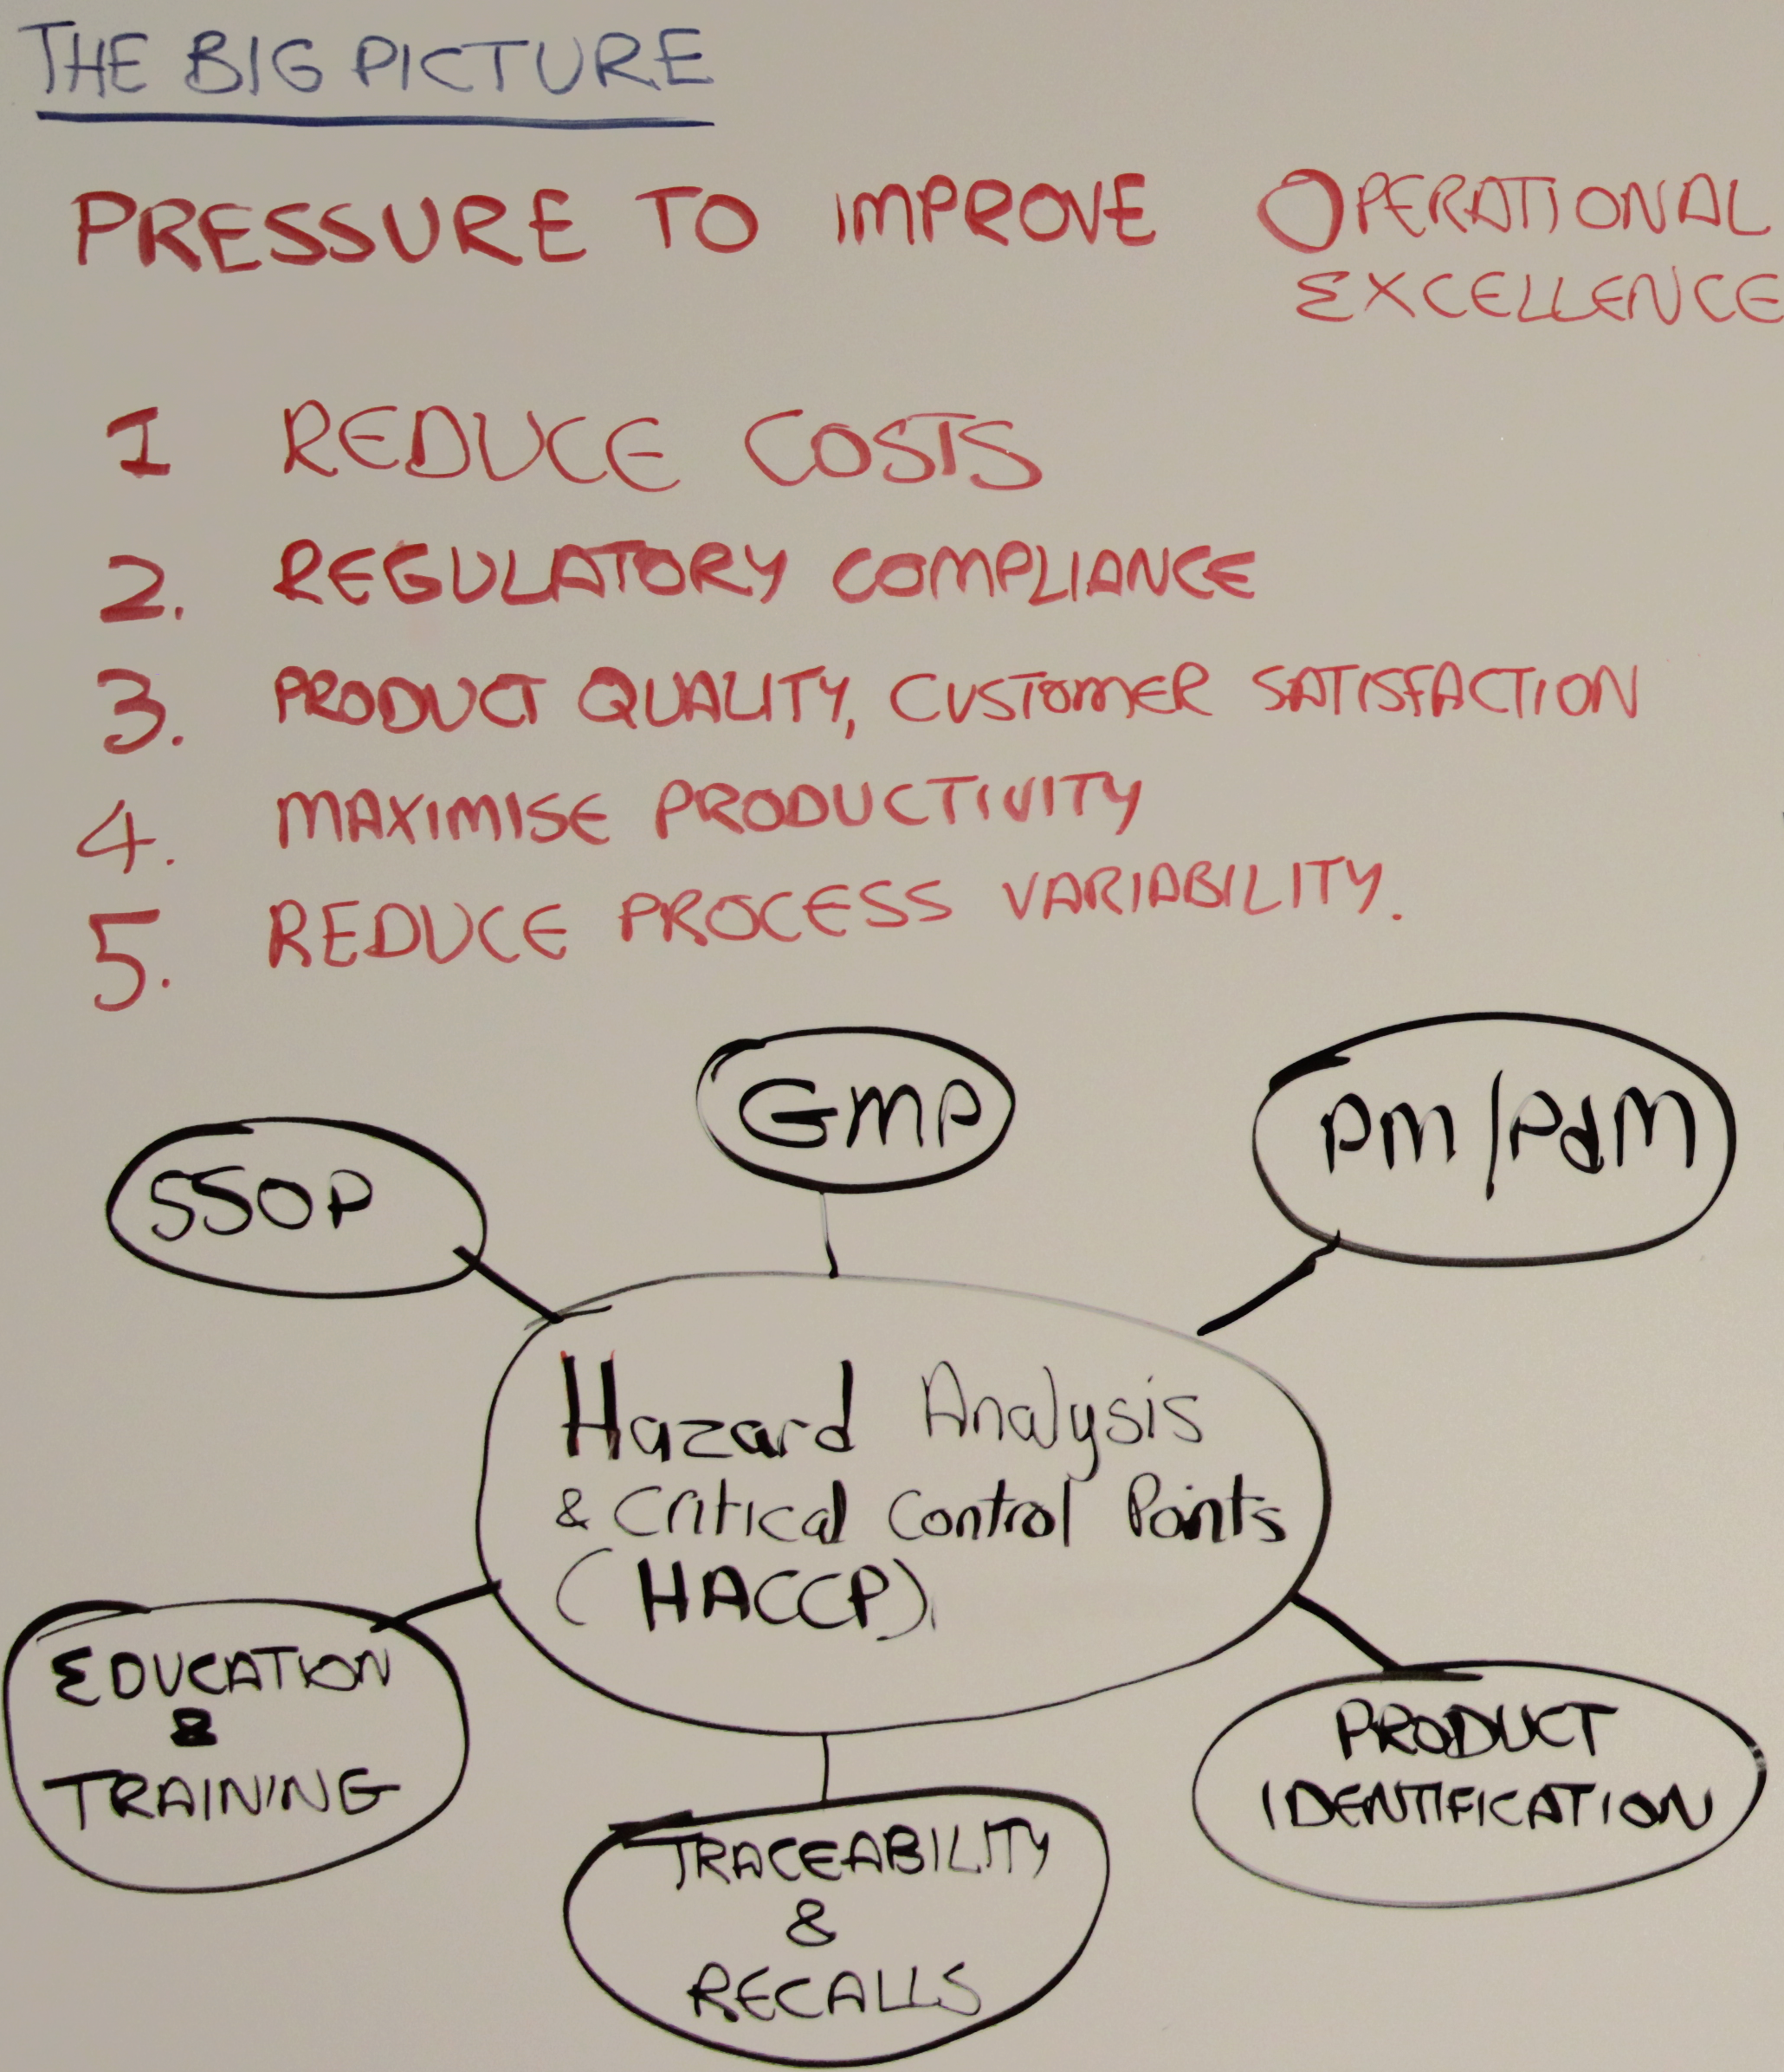 THE BIG PICTURE
PRESSURE TO IMPROVE OPERATIONAL
EXCELLENCE
1 REDUCE COSTS
2. REGULATORY COMPLIANCE
3. PRODUCT QUALITY, CUSTOMER SATISFACTION
4. MAXIMISE PRODUCTIVITY
5. REDUCE PROCESS VARIABILITY.
GMP
PM/PdM
SSOP
Hazard Analysis
& Critical Control Points
(HACCP).
EDUCATION
&
TRAINING
PRODUCT
IDENTIFICATION
TRACEABILITY
&
RECALLS